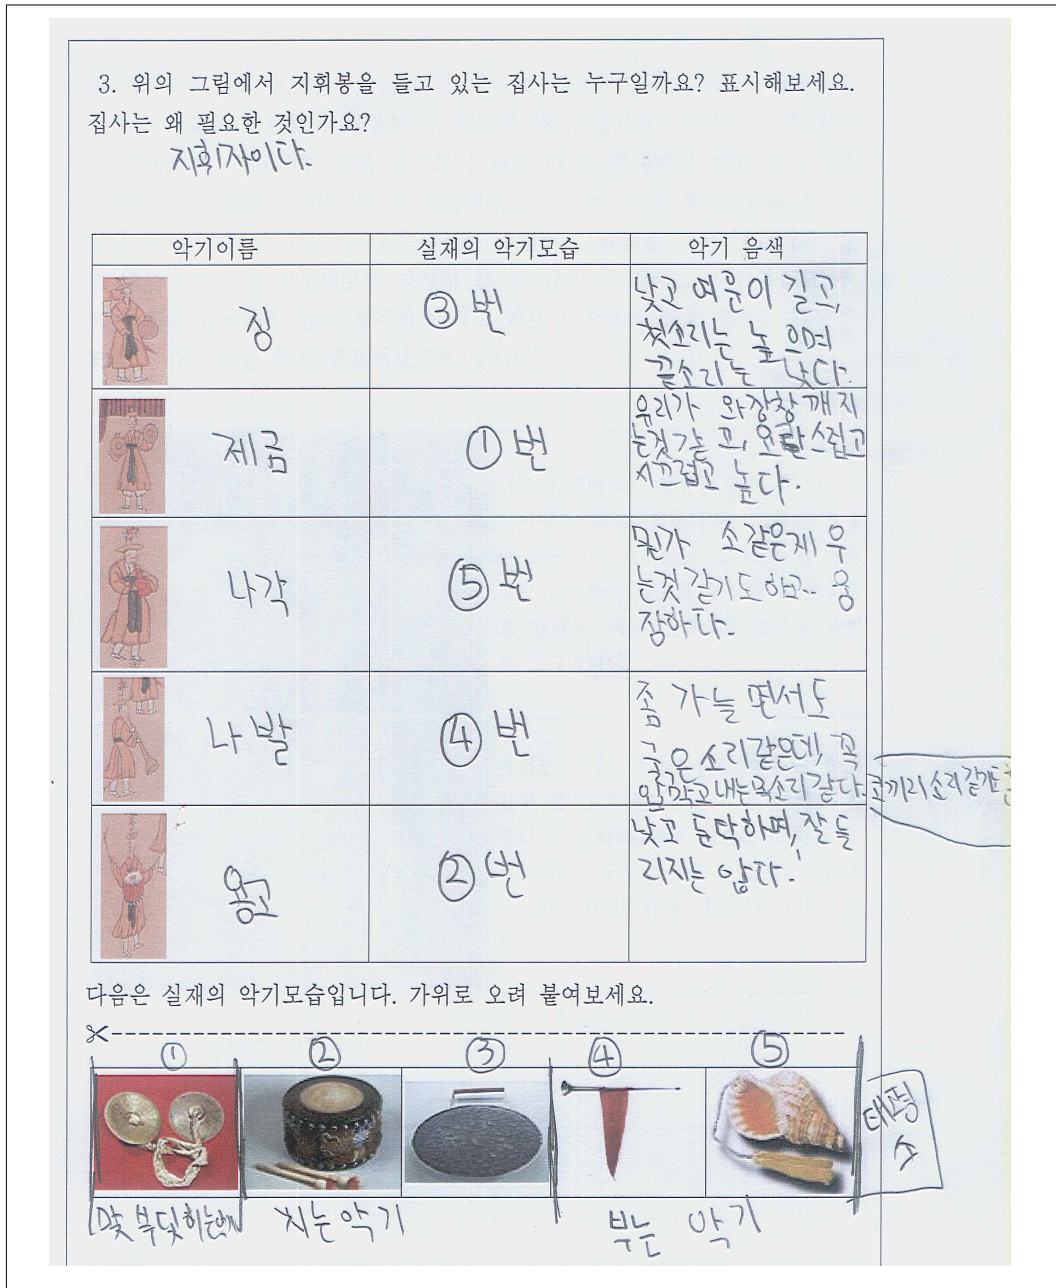 3. 위의 그림에서 지휘봉을 들고 있는 집사는 누구일까요? 표시해보세요.
집사는 왜 필요한 것인가요?
지휘자이다.
악기이름 실재의 악기모습 악기 음색
징 ③번 낮고 여운이 길고
첫소리는 높으며
끝소리는 낮다.
제금 ①번 유리가 와장창 깨지
는것 같고, 요란스럽고
시끄럽고 높다.
나각 ⑤번 뭔가 소같은게 우
는것 같기도 하고.. 웅
장하다.
나발 ④번 좀 가늘면서도
굵은 소리같은데, 꼭
코끼리소리같기도
용고 ②번 낮고 둔탁하며, 잘 들
리지는 않다.
다음은 실재의 악기모습입니다. 가위로 오려 붙여보세요.
① ② ③ ④ ⑤
태평
소
맞부딪히는악기 치는악기 부는 악기